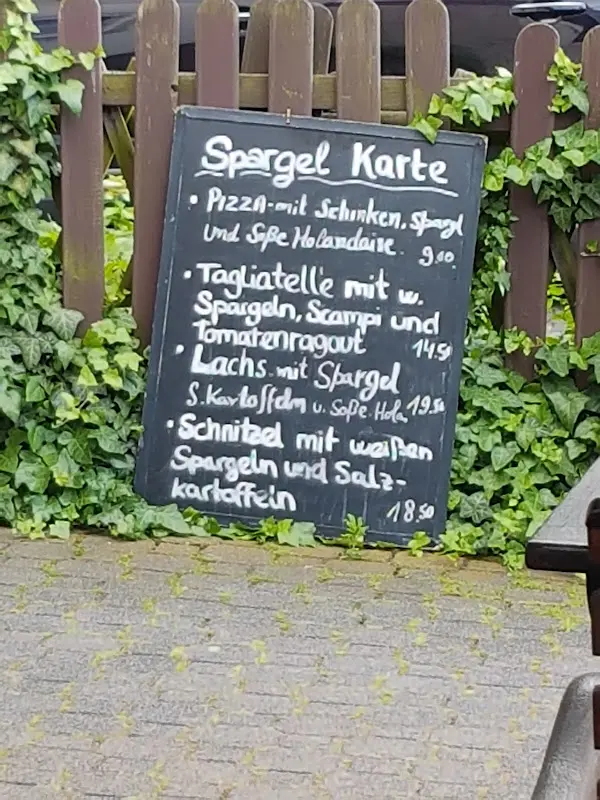 Spargel Karte
• Pizza mit Schinken, Spargl
und Soße Holandaise 9.00
• Tagliatelle mit w.
Spargeln, Scampi und
Tomatenragout 14.50
• Lachs mit Spargel
S.Kartoffeln u. Soße Hola. 19.50
• Schnitzel mit weißen
Spargeln und Salz-
kartoffeln 18.50